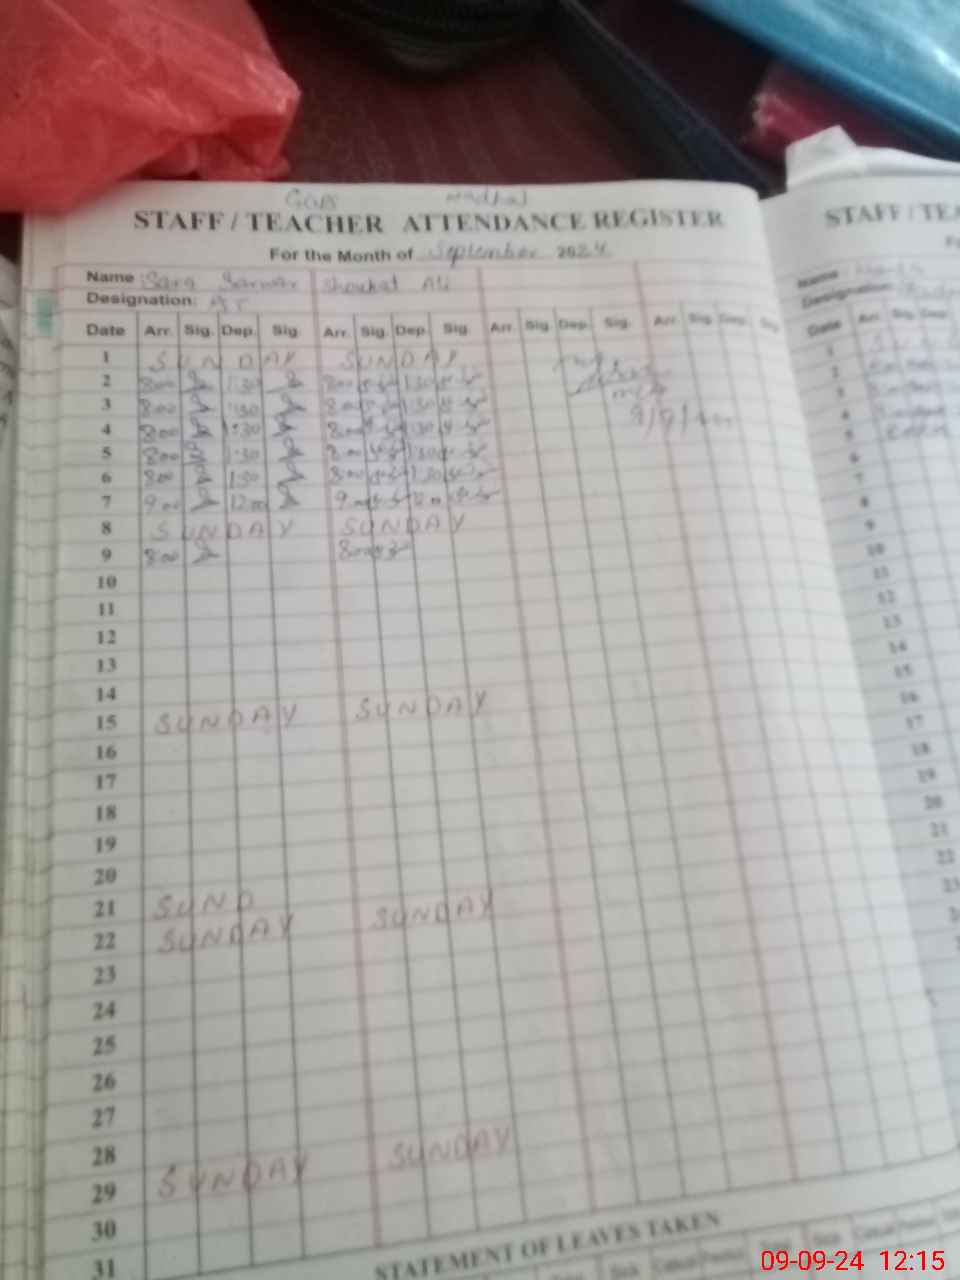 STAFF / TEACHER ATTENDANCE REGISTER
For the Month of September 2024
Name Sara Sarwar Shoukat Ali
Designation:
Date Arr. Sig. Dep. Sig. Arr. Sig. Dep. Sig. Arr. Sig. Dep. Sig. Arr. Sig. Dep. Sig.
1 SUNDAY SUNDAY
2 8:00 1:30 8:00 1:30
3 8:00 1:30 8:00 1:30
4 8:00 1:30 8:00 1:30
5 8:00 1:30 8:00 1:30
6 8:00 1:30 8:00 1:30
7 9:00 12:00 9:00 12:00
8 SUNDAY SUNDAY
9 8:00 8:00
10
11
12
13
14
15 SUNDAY SUNDAY
16
17
18
19
20
21 SUND
22 SUNDAY SUNDAY
23
24
25
26
27
28
29 SUNDAY SUNDAY
30
31
STATEMENT OF LEAVES TAKEN
STAFF / TEA
Name
Designation
Date Arr. Sig. Dep.
1
2
3
4
5
6
7
8
9
10
11
12
13
14
15
16
17
18
19
20
21
22
23
09-09-24 12:15